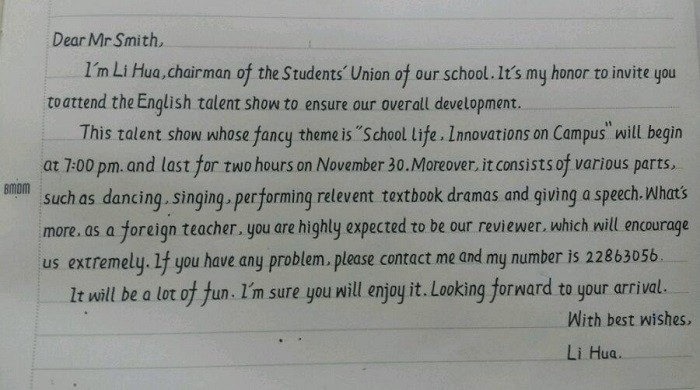 Dear Mr Smith,
I'm Li Hua, chairman of the Students' Union of our school. It's my honor to invite you
to attend the English talent show to ensure our overall development.
This talent show whose fancy theme is "School life, Innovations on Campus" will begin
at 7:00 pm. and last for two hours on November 30. Moreover, it consists of various parts,
BMDM
such as dancing, singing, performing relevent textbook dramas and giving a speech. What's
more, as a foreign teacher, you are highly expected to be our reviewer, which will encourage
us extremely. If you have any problem, please contact me and my number is 22863056.
It will be a lot of fun. I'm sure you will enjoy it. Looking forward to your arrival.
With best wishes,
Li Hua.